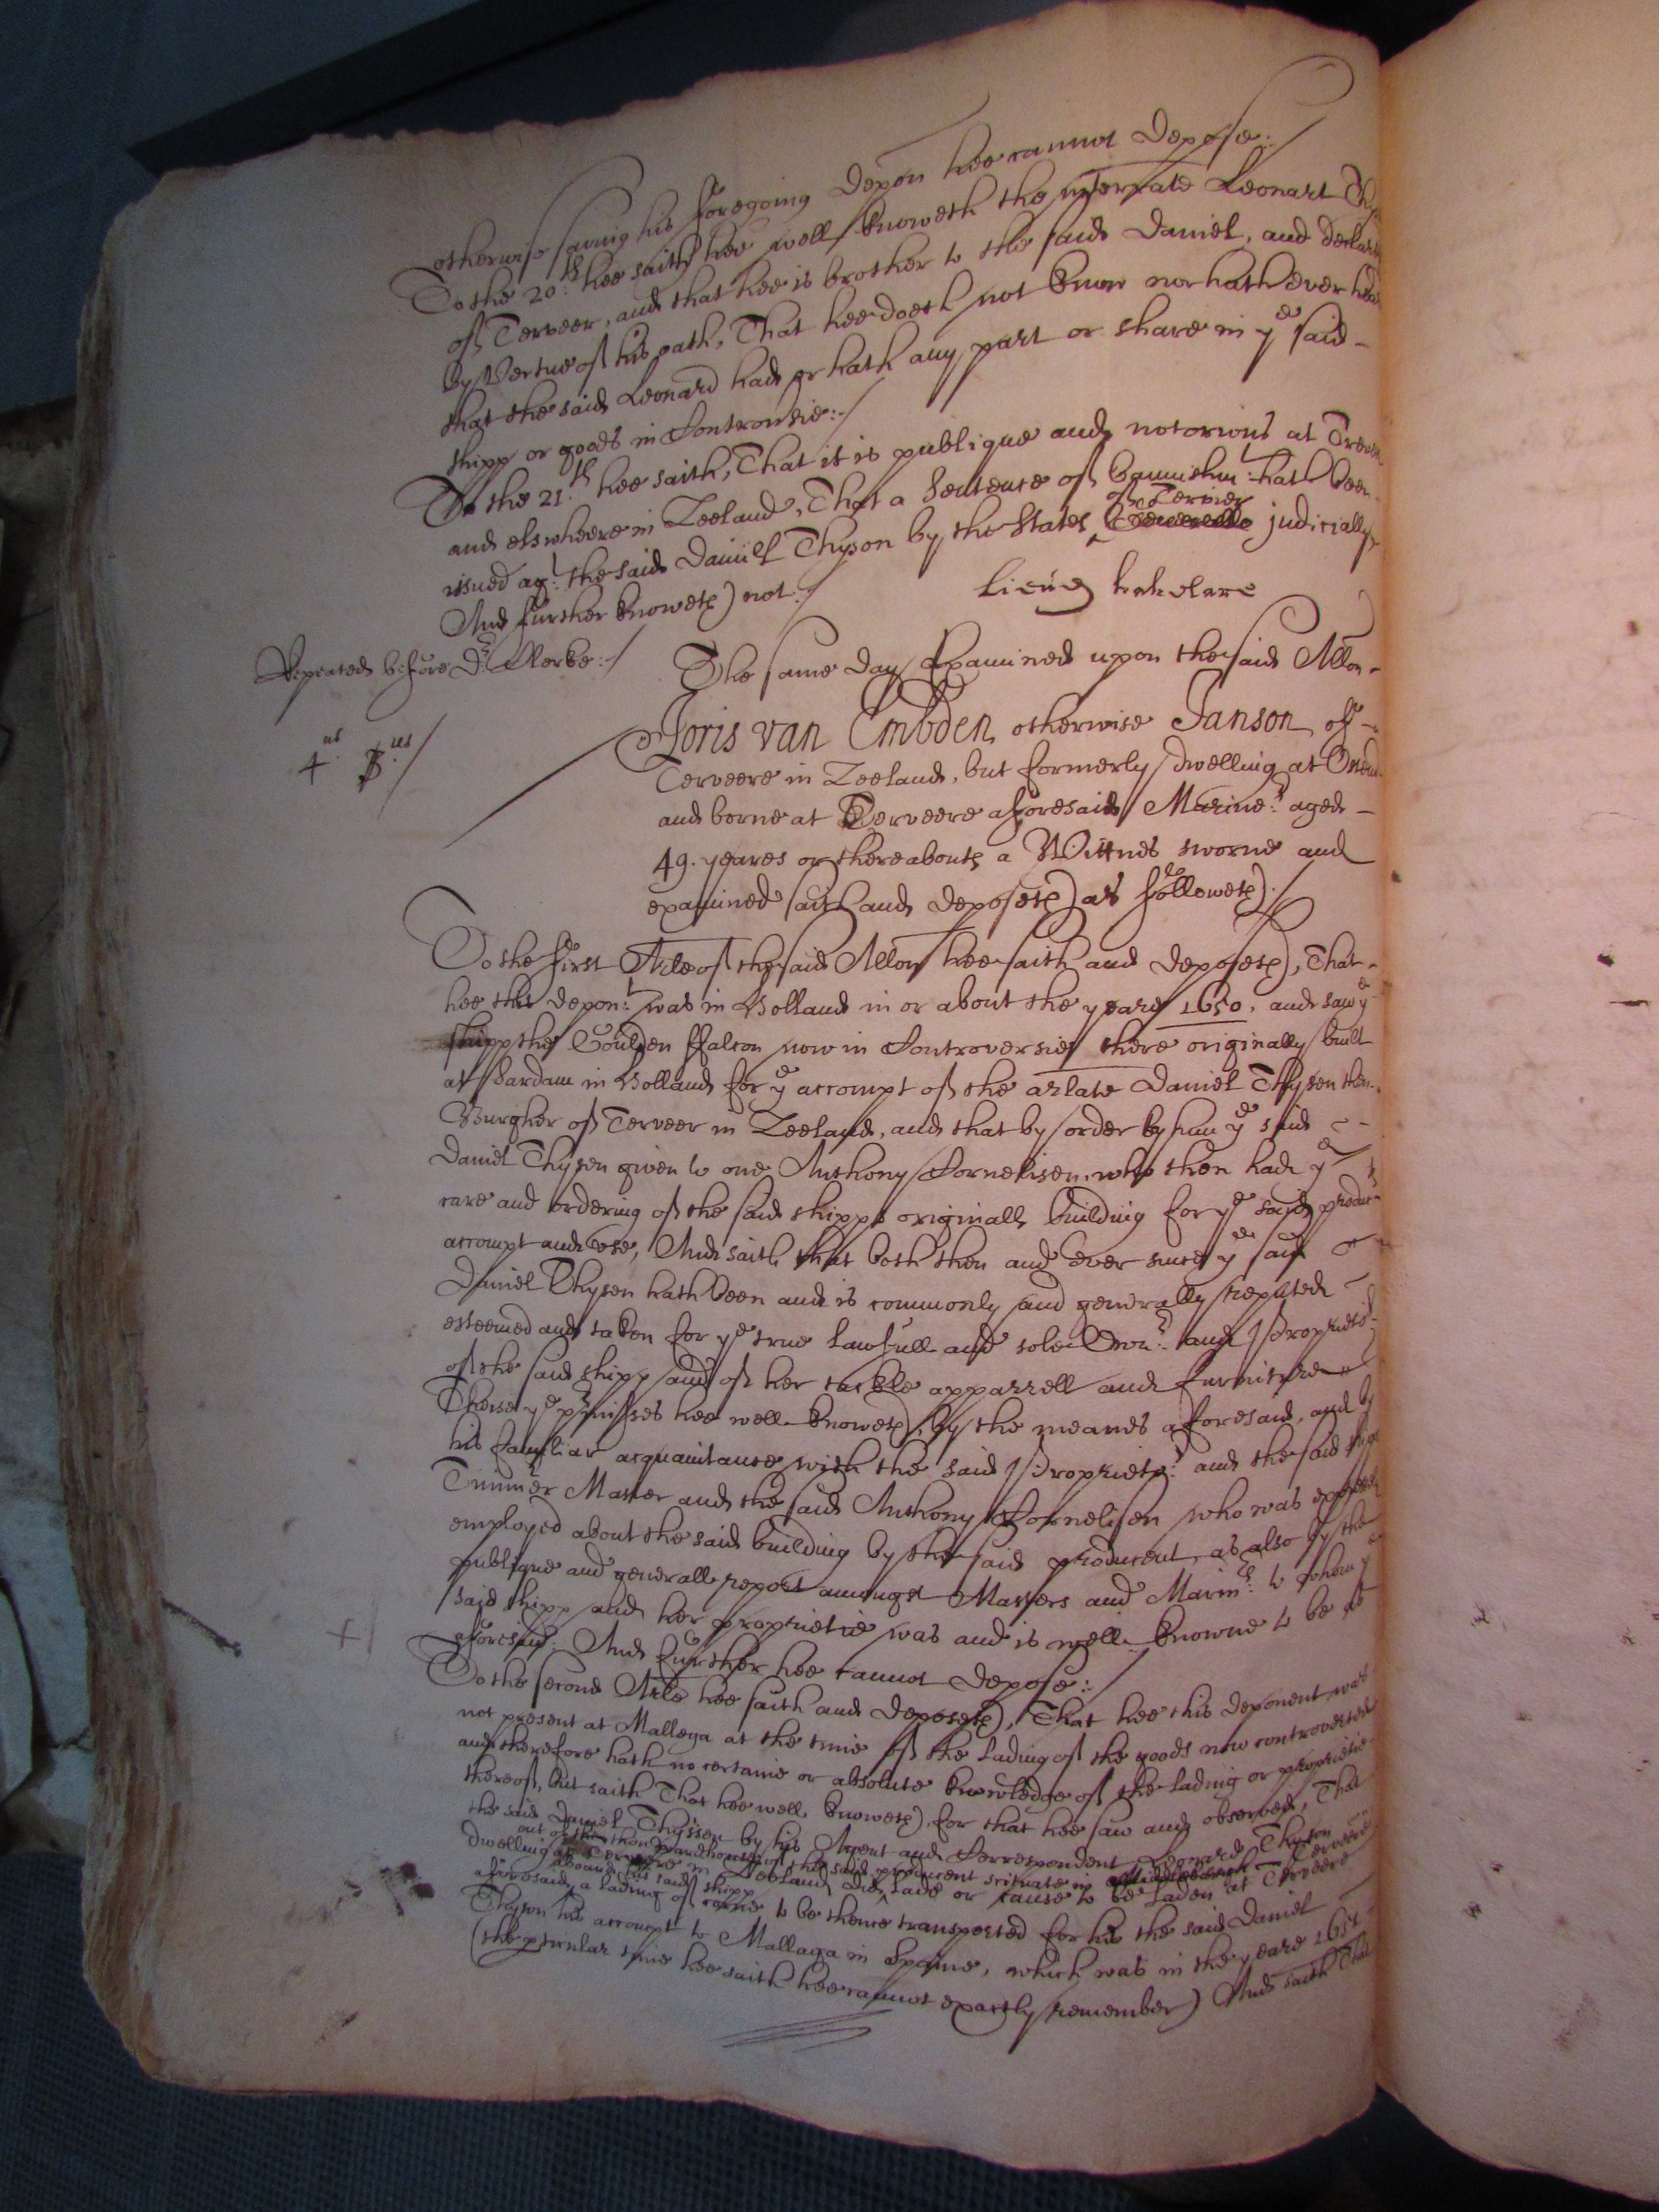 otherwise saving his foregoing depon hee cannot depose:/
To the 20:th hee saith hee well knoweth the interrate Leonart
of Terveer, and that hee is brother to the said Daniel, and declar
by vertue of his oath, That hee doeth not know nor hath ever
that the said Leonard had or hath any part or share in ye said
shipp or goods in Controversie:/
To the 21.th hee saith, That it is publique and notorious at
and elswheere in Zeeland, That a Sentence of bannishmt hath been
issued agt: the said Daniel Thyson by the States of Terveer judicially
And further knoweth not:/
Repeated before Dr. Clerke:/
The same day Examined upon the said Allon
4us 3us/
Joris van Embden, otherwise Janson of
Terveere in Zeeland, but formerly dwelling at
and borne at Terveere aforesaid Marinr: aged
49. yeares or thereabouts a Wittnes sworne and
examined saith and deposeth as followeth:/
To the first Arle of the said Allon hee saith and deposeth, That
hee this depont: was in Holland in or about the yeare 1650. and saw ye
shipp the Goulden ffalcon now in Controversie there originally built
at Sardam in Holland for ye accompt of the arlate Daniel Thysen then
Burgher of Terveer in Zeeland, and that by order by him ye said
Daniel Thysen given to one Anthony Cornelisen, who then had ye
care and ordering of the said shipps originall building for ye said
accompt and use, And saith that both then and ever since ye said
Daniel Thysen hath been and is commonly and generally reputed
esteemed and taken for ye true lawfull and sole Ownr: and Proprietr:
of the said shipp and of her tackle apparrell and furniture
Theise ye prmisses hee well knoweth, by the meanes aforesaid, and by
his familiar acquaintance with the said Proprietr: and the said
Timmer Master and the said Anthony Cornelisen who was
employed about the said building by the said producent, as also by the
publique and generall report amongst Masters and Marinrs: to whom ye
said shipp and her proprietie was and is well knowne to be as
aforesaid. And further hee cannot depose:/
To the second Arle hee saith and deposeth, That hee this deponent was
not present at Mallega at the time of the lading of the goods now controverted
and therefore hath no certaine or absolute knowledge of the lading or proprietie
thereof, but saith That hee well knoweth, for that hee saw and observed, That
the said Daniel Thyssen by his Agent and Correspondent Leonard Thyson
out of the then wardhouse of the said producent scituate in Terveere
dwelling at Terveere in Zeeland did lade or cause to be laden at Terveere
aboard his said shipp
aforesaid, a lading of corne to be thence transported for his the said Daniel
Thyson his accompt to Mallaga in Spaine, which was in the yeare
(the pticular time hee saith hee cannot exactly remember) And saith That